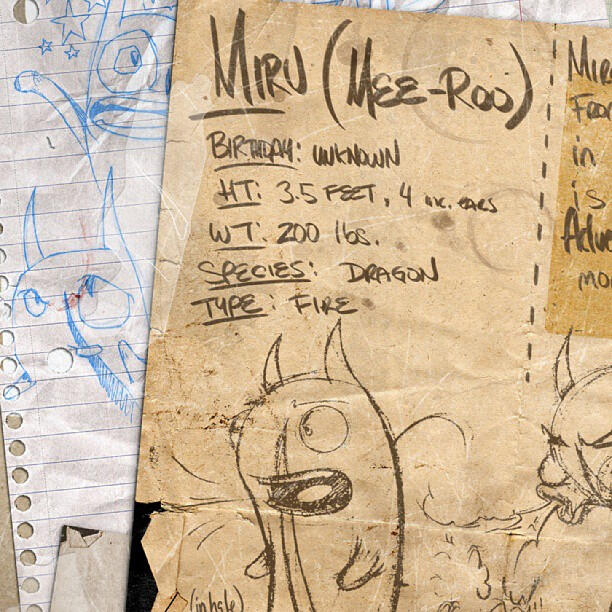 Miru (Mee-Roo)
Birthday: unknown
HT: 3.5 feet, 4 inc. ears
WT: 200 lbs.
Species: Dragon
Type: Fire
(inhale)
in
is